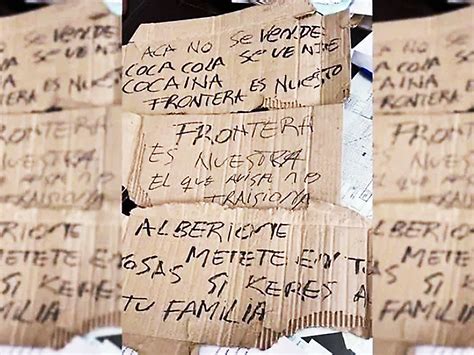 ACA NO SE VENDE
COCA COLA SE VENDE
COCAINA
FRONTERA ES NUESTRO
FRONTERA
ES NUESTRA
EL QUE AVISA NO
TRAISIONA
ALBERIONE
METETE EN
TOSAS SI KERES
A TU FAMILIA